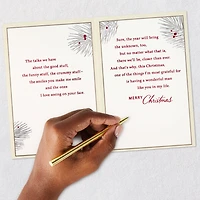 The talks we have
about the good stuff,
the funny stuff, the crummy stuff—
the smiles you make me smile
and the ones
I love seeing on your face.
Sure, the year will bring
the unknown, too,
but no matter what that is,
there we'll be, closer than ever.
And that's why, this Christmas,
one of the things I'm most grateful for
is having a wonderful man
like you in my life.
MERRY Christmas